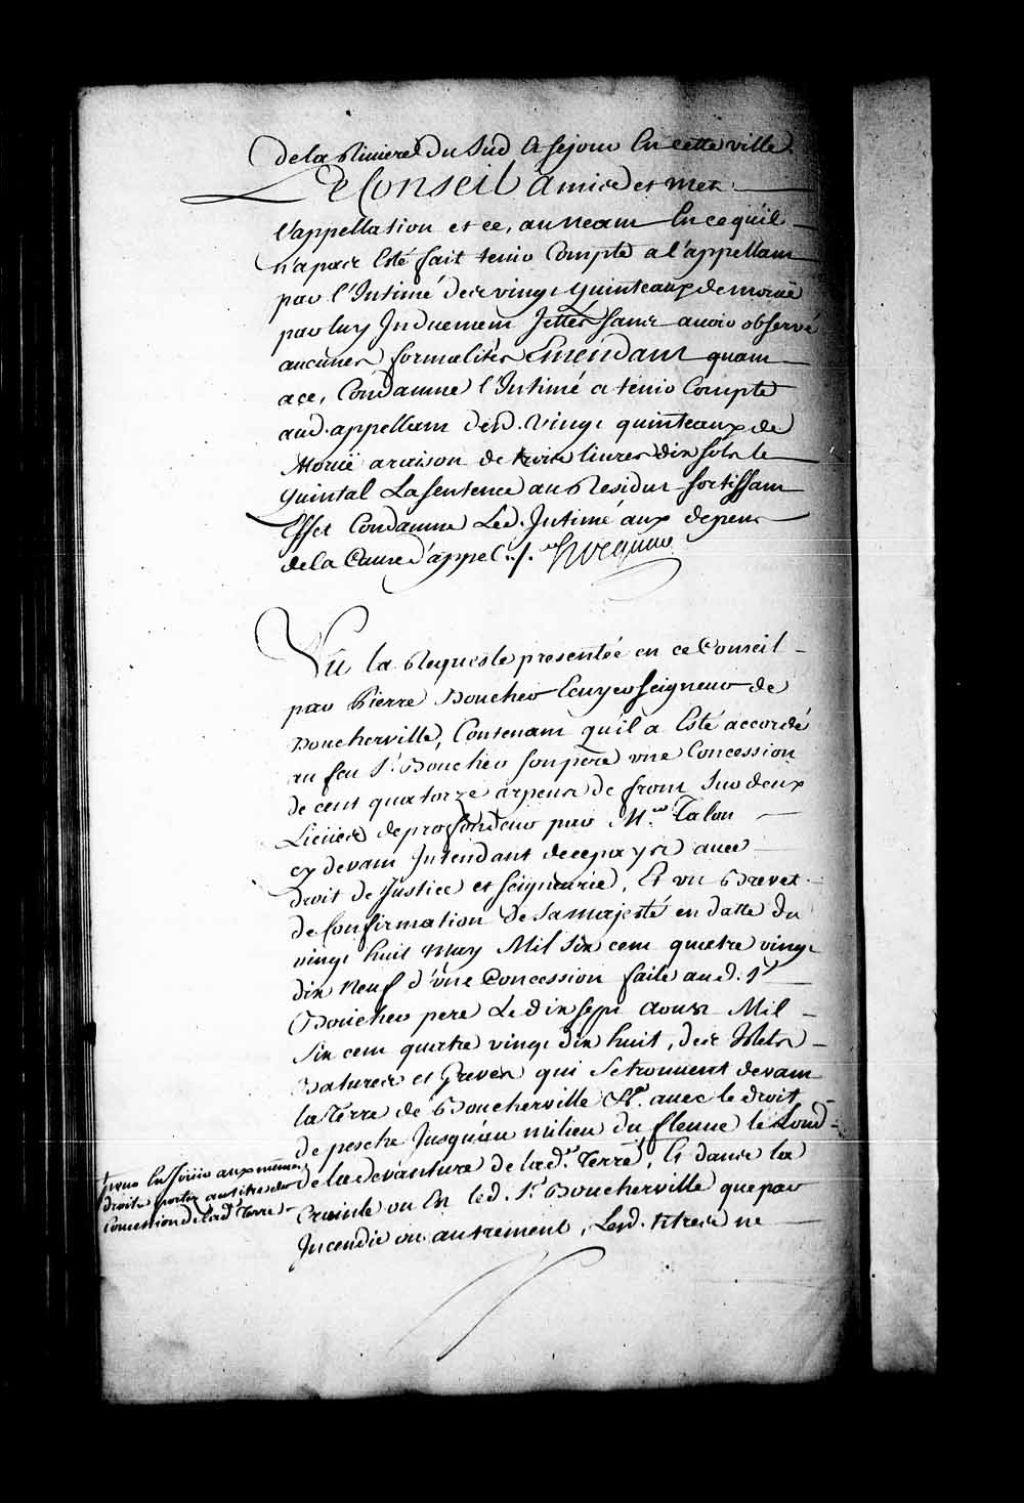 de la Riviere du Sud a sejour En cette ville.
Le Conseil a mis et met
l'appellation et ce, au neant En ce qu'il
n'a pas Esté fait tenir Compte a l'appellant
par l'Intimé des vingt quinteaux de moruë
par luy Induement Jettés sans avoir observé
aucunes formalités Emendant quant
a ce, Condamne l'Intimé a tenir Compte
aud. appellant desd. vingt quinteaux de
Moruë a raison de trois livres dix sols le
quintal La sentence au Residu sortissant
Effet Condamne Led. Intimé aux depens
de la Cause d'appel ./.
Vu la Requeste presentée en ce Conseil
par Pierre Boucher Ecuyer seigneur de
Boucherville, Contenant qu'il a Esté accordé
au feu Sr. Boucher son pere une Concession
de cent quatorze arpens de front sur deux
Lieües de profondeur par Mr. Talon
cy devant Intendant de ce pays avec
droit de Justice et seigneurie, Et un Brevet
de Confirmation de sa majesté en datte du
vingt huit may Mil six cent quatre vingt
dix neuf d'une Concession faite aud. Sr
Boucher pere Le dix sept aoust Mil
six cent quatre vingt dix huit, des Islets
Batures et Greves qui se trouvent devant
la Terre de Boucherville &a. avec le droit
de pesche Jusqu'au milieu du fleuve le Long
de la devanture de lad. Terre, Et dans la
pour En Joüir aux mêmes
droits portez au titre de
Concession de lad. Terre
Crainte ou En led. Sr. Boucherville que par
Incendie ou autrement, Lesd. titres ne